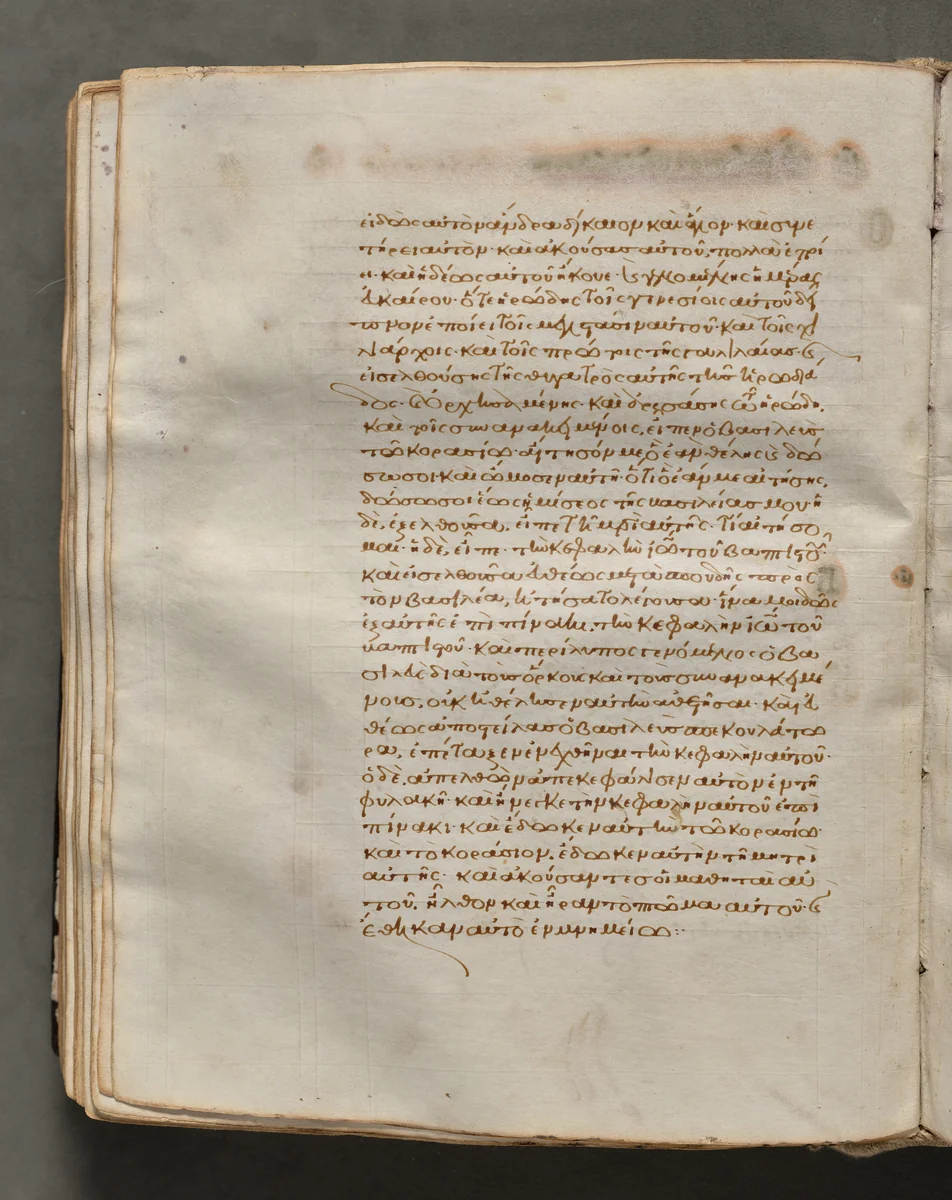 εἰδὼς αὐτὸν ἄνδρα δίκαιον καὶ ἅγιον· καὶ συνε
τήρει αὐτόν· καὶ ἀκούσας αὐτοῦ, πολλὰ ἐποί
ει· καὶ ἡδέως αὐτοῦ ἤκουε· καὶ γενομένης ἡμέρας
εὐκαίρου· ὅτε ἡρώδης τοῖς γενεσίοις αὐτοῦ δεῖ
πνον ἐποίει τοῖς μεγιστᾶσιν αὐτοῦ· καὶ τοῖς χι
λιάρχοις· καὶ τοῖς πρώτοις τῆς γαλιλαίας· καὶ
εἰσελθούσης τῆς θυγατρὸς αὐτῆς τῆς ἡρωδιά
δος· καὶ ὀρχησαμένης· καὶ ἀρεσάσης τῶ ἡρώδη,
καὶ τοῖς συνανακειμένοις, εἶπεν ὁ βασιλεὺς
τῶ κορασίω· αἴτησόν με ὃ ἐὰν θέλης καὶ δώ
σω σοι· καὶ ὤμοσεν αὐτῆ· ὅτι ὃ ἐάν με αἰτήσης,
δώσω σοι ἕως ἡμίσεος τῆς βασιλείας μου· ἡ
δὲ, ἐξελθοῦσα, εἶπε τῆ μρὶ αὐτῆς· τί αἰτήσο
μαι· ἡ δὲ, εἶπε· τὴν κεφαλὴν ἰῶ τοῦ βαπτιστοῦ·
καὶ εἰσελθοῦσα εὐθέως μετὰ σπουδῆς πρὸς
τὸν βασιλέα, ἠτήσατο λέγουσα· ἵνα μοι δῶς
ἐξαυτῆς ἐπὶ πίνακι, τὴν κεφαλὴν ἰῶ τοῦ
βαπτιστοῦ· καὶ περίλυπος γενόμενος ὁ βα
σιλεὺς διὰ τοὺς ὅρκους καὶ τοὺς συνανακειμέ
νους, οὐκ ἠθέλησεν αὐτὴν ἀθετῆσαι· καὶ εὐ
θέως ἀποστείλας ὁ βασιλεὺς σπεκουλάτω
ρα, ἐπέταξεν ἐνεχθῆναι τὴν κεφαλὴν αὐτοῦ·
ὁ δὲ, ἀπελθὼν ἀπεκεφάλισεν αὐτὸν ἐν τῆ
φυλακῆ· καὶ ἤνεγκε τὴν κεφαλὴν αὐτοῦ ἐπὶ
πίνακι· καὶ ἔδωκεν αὐτὴν τῶ κορασίω·
καὶ τὸ κοράσιον, ἔδωκεν αὐτὴν τῆ μητρὶ
αὐτῆς· καὶ ἀκούσαντες οἱ μαθηταὶ αὐ
τοῦ, ἦλθον καὶ ἦραν τὸ πτῶμα αὐτοῦ· καὶ
ἔθηκαν αὐτὸ ἐν μνημείω:·